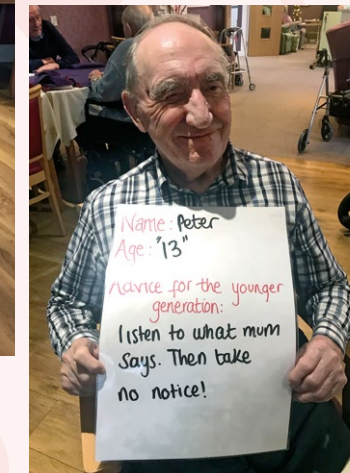 Name: Peter
Age: "13"
Advice for the younger
generation:
listen to what mum
says. Then take
no notice!